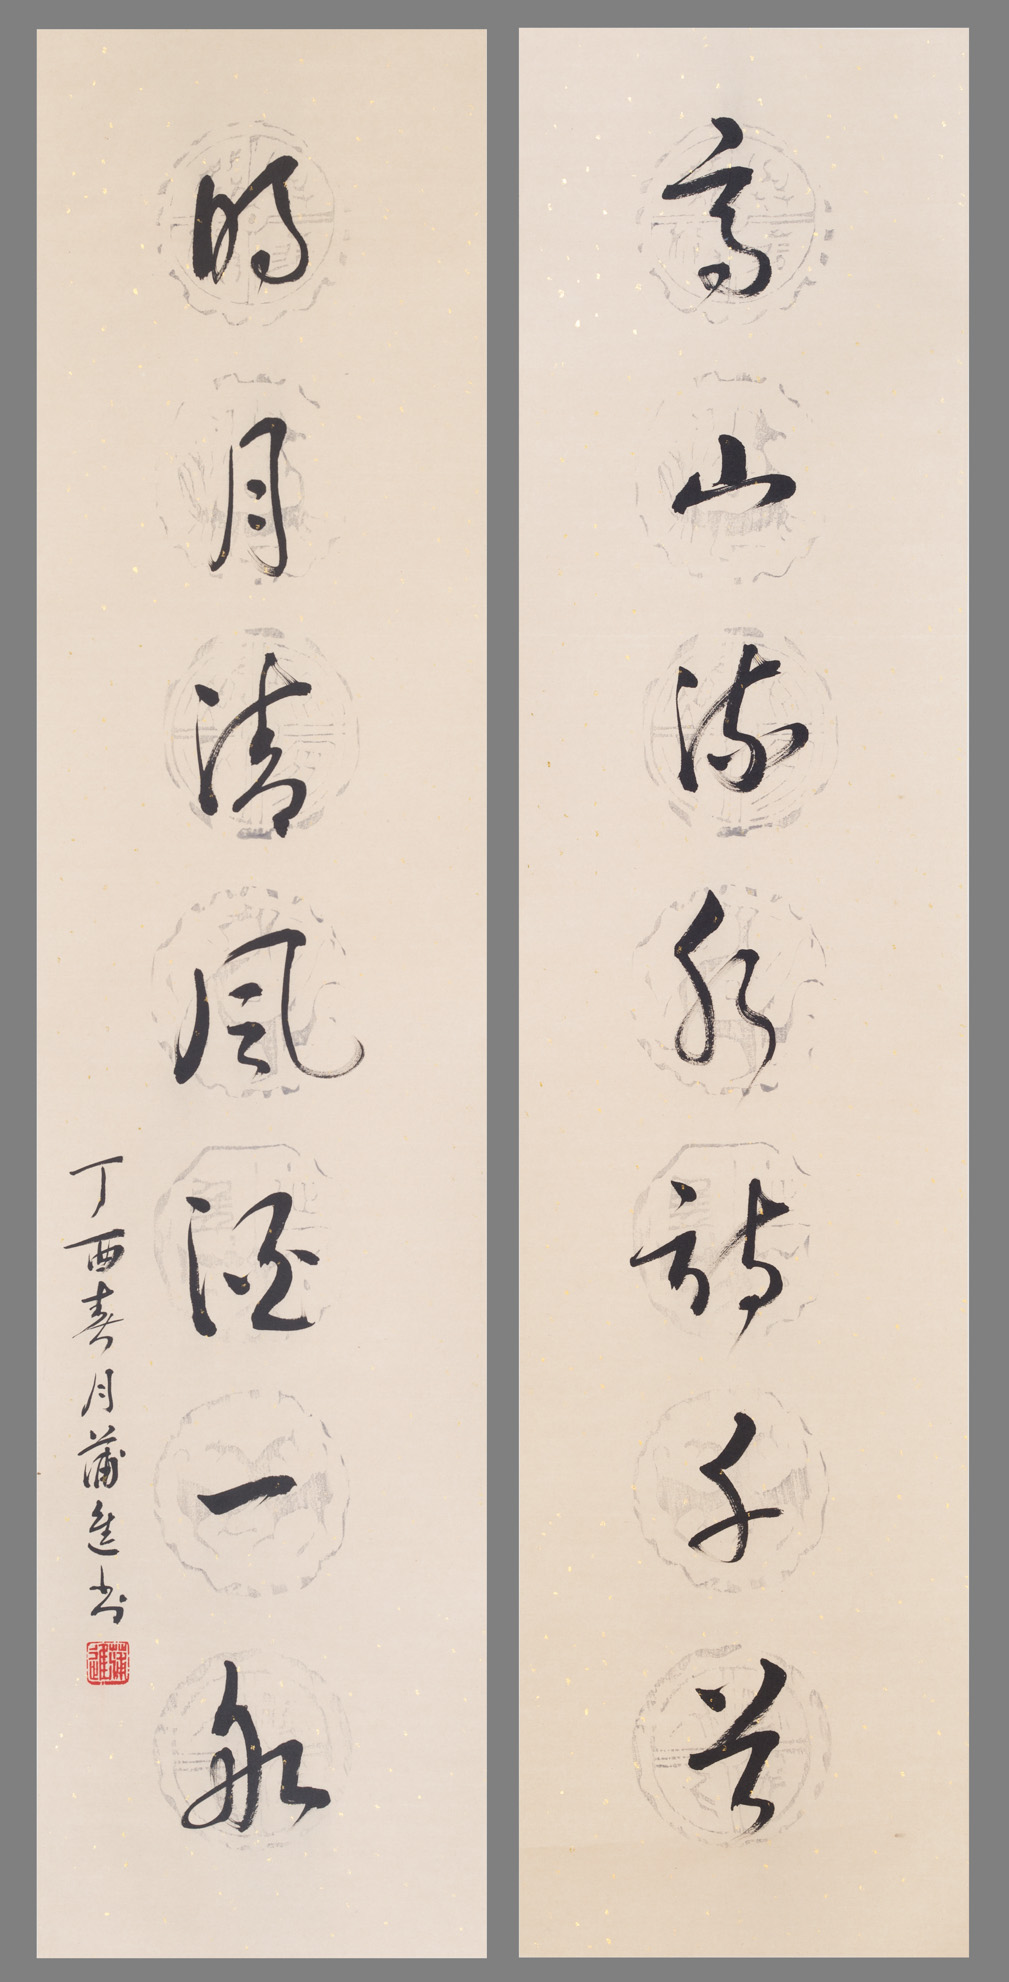 高山流水詩千首
明月清風酒一船
丁酉春月蒲進書
蒲進